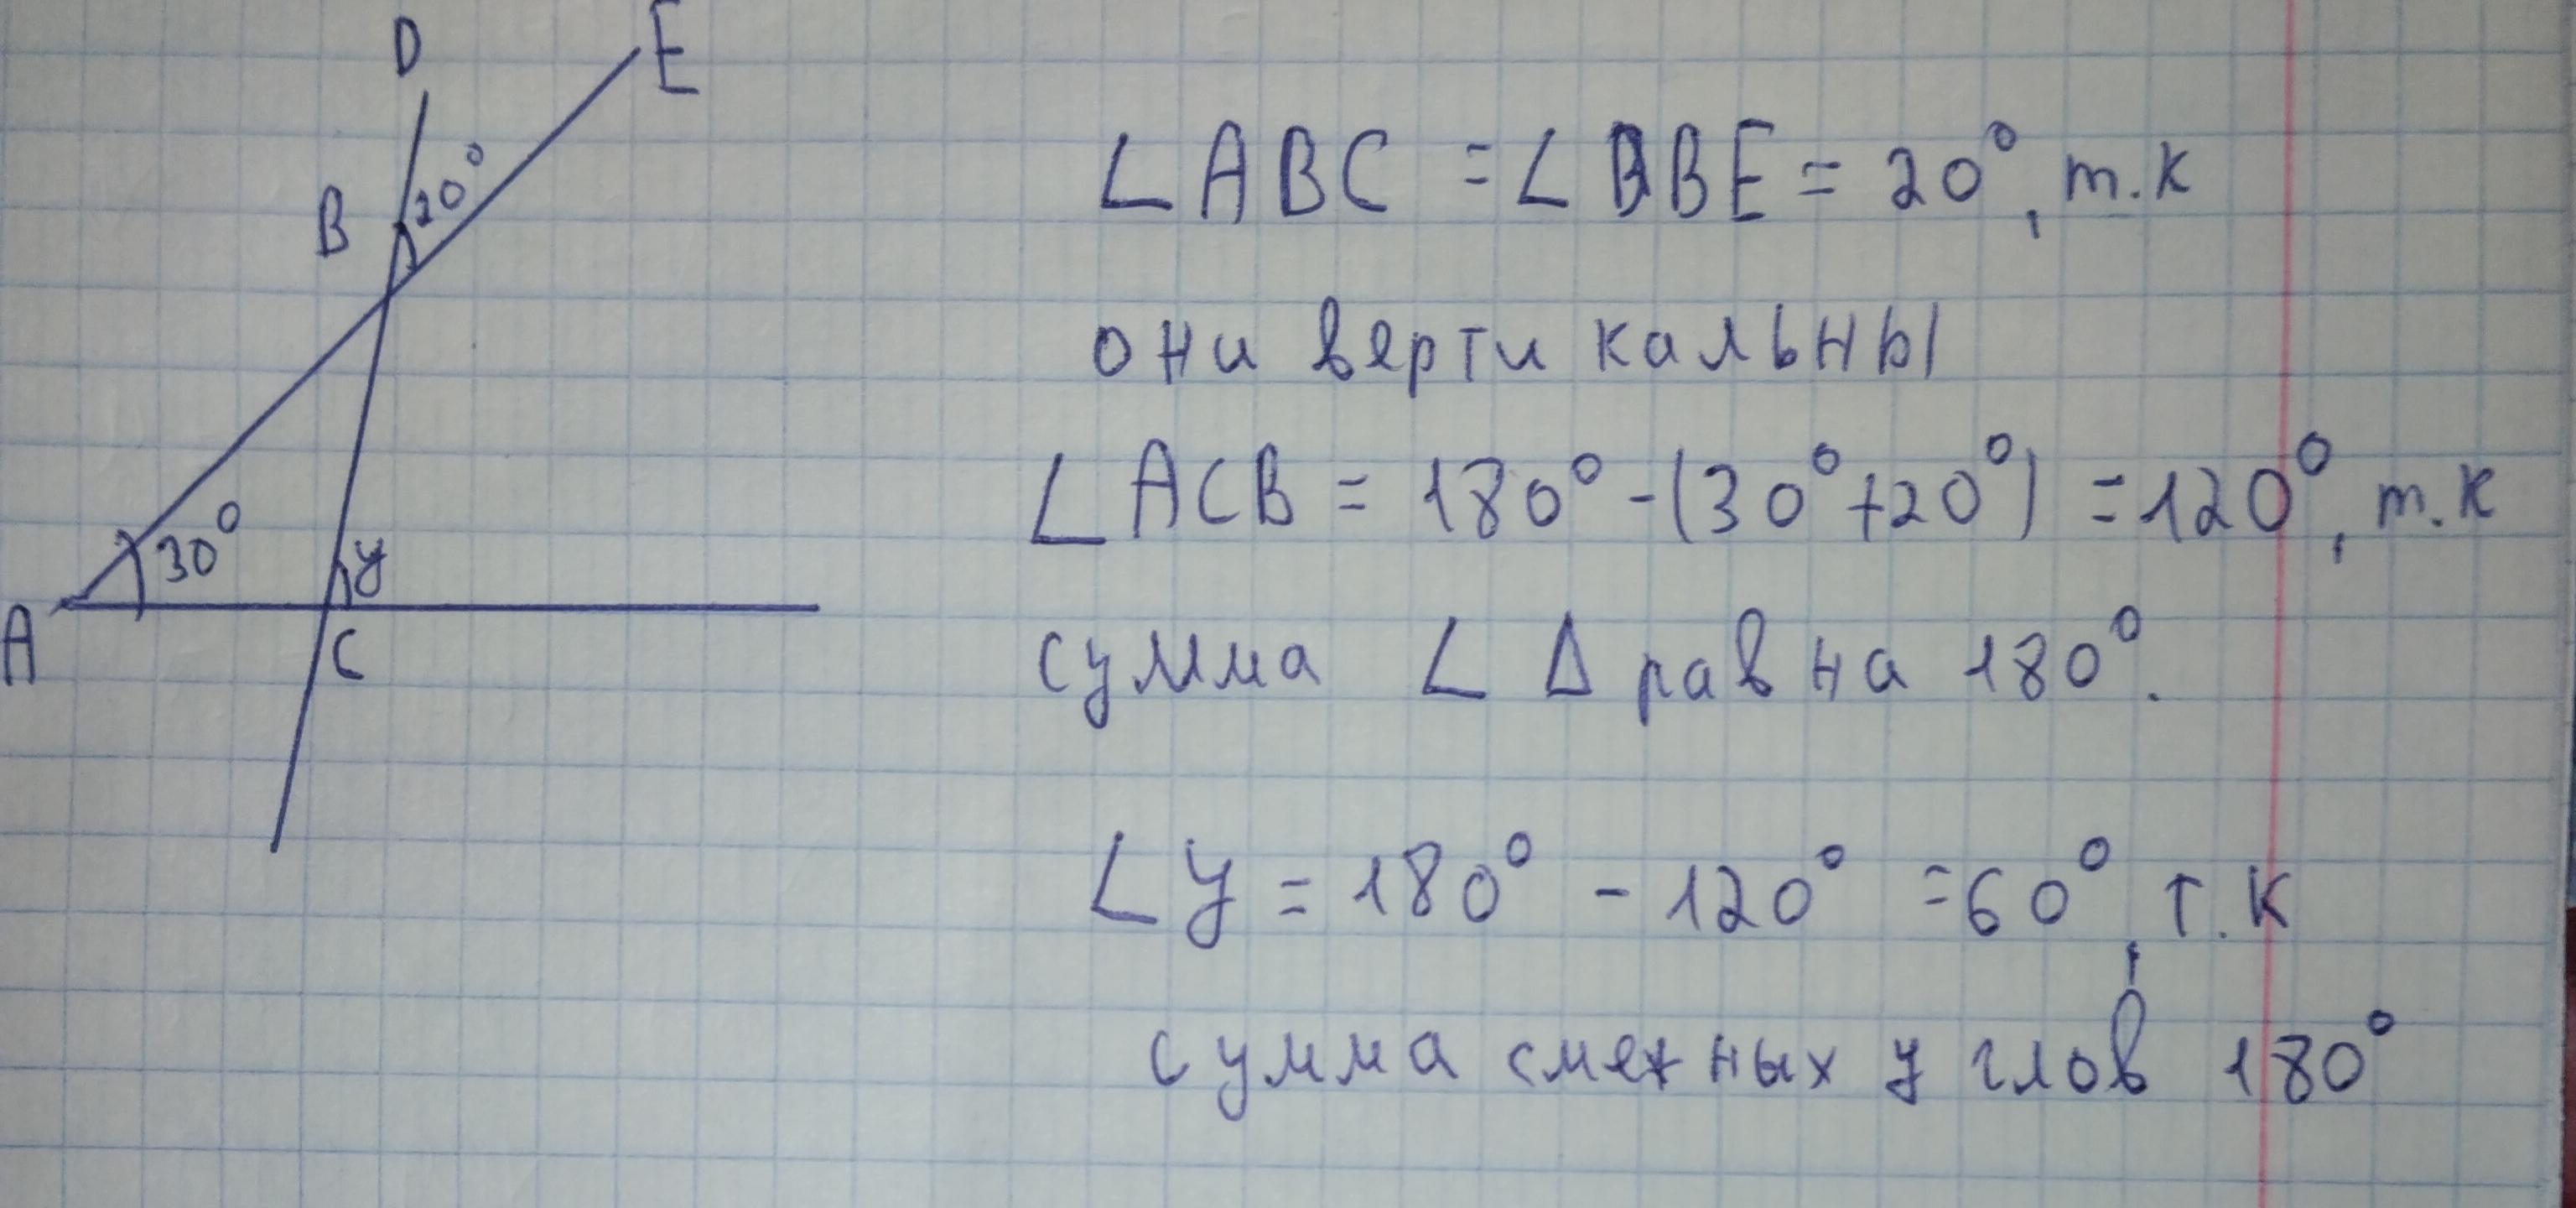 D
E
20°
B
30°
y
A
C
∠ABC = ∠DBE = 20°, т.к
они вертикальны
∠ACB = 180° - (30°+20°) = 120°, т.к
сумма ∠ Δ равна 180°.
∠y = 180° - 120° = 60°, т.к
сумма смежных углов 180°